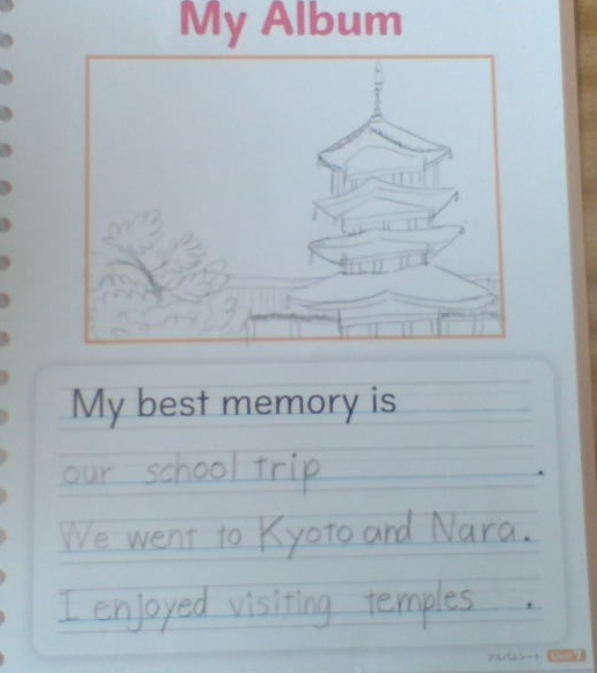 My Album
My best memory is
our school trip.
We went to Kyoto and Nara.
I enjoyed visiting temples.
アルバムシート Unit 9